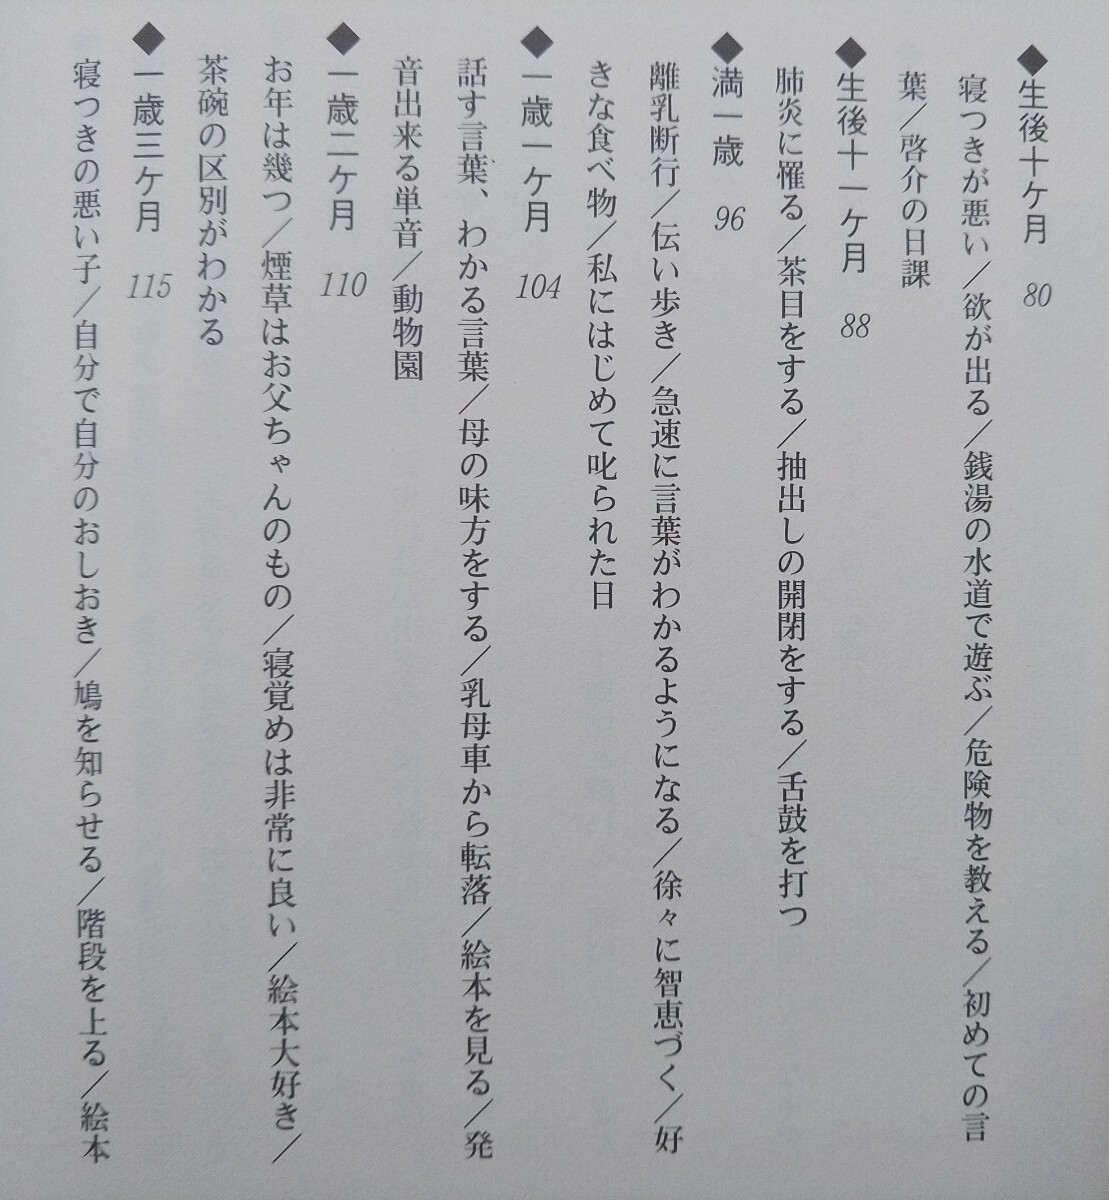 ◆生後十ケ月 80
寝つきが悪い／欲が出る／銭湯の水道で遊ぶ／危険物を教える／初めての言
葉／啓介の日課
◆生後十一ケ月 88
肺炎に罹る／茶目をする／抽出しの開閉をする／舌鼓を打つ
◆満一歳 96
離乳断行／伝い歩き／急速に言葉がわかるようになる／徐々に智恵づく／好
きな食べ物／私にはじめて叱られた日
◆一歳一ケ月 104
話す言葉、わかる言葉／母の味方をする／乳母車から転落／絵本を見る／発
音出来る単音／動物園
◆一歳二ケ月 110
お年は幾つ／煙草はお父ちゃんのもの／寝覚めは非常に良い／絵本大好き／
茶碗の区別がわかる
◆一歳三ケ月 115
寝つきの悪い子／自分で自分のおしおき／鳩を知らせる／階段を上る／絵本